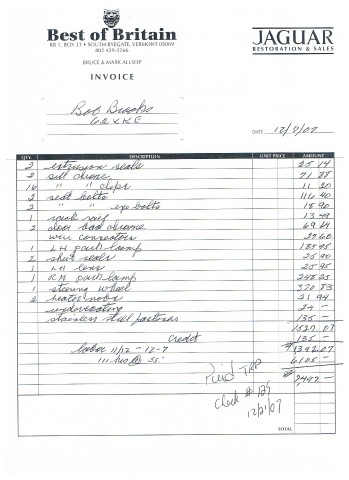 Best of Britain
RR 1, BOX 33 • SOUTH RYEGATE, VERMONT 05069
802 429-2266
BRUCE & MARK ALLSOP
INVOICE
JAGUAR
RESTORATION & SALES
Bob Brooks
62 XKE
DATE 12/7/07
QTY. DESCRIPTION UNIT PRICE AMOUNT
2 extrusion seals 25 14
2 sill chrome 71 28
16 " " clips 11 20
2 seat belts 116 40
2 " " eye bolts 18 90
1 13 49
2 door chrome 69 64
wire connectors 27 60
1 LH park lamp
2 seals 25 90
1 LH lens 25 95
1 RH park lamp
1 steering wheel 370 73
2 heater nobs 21 94
undercoating 24 –
stainless steel fasteners 135 –
1527 07
Credit 135 –
1392.07
labor 11/12 – 12-7
111 hrs @ 55. 6105 –
7497 –
Paid
Check # 125
12/21/07
TOTAL